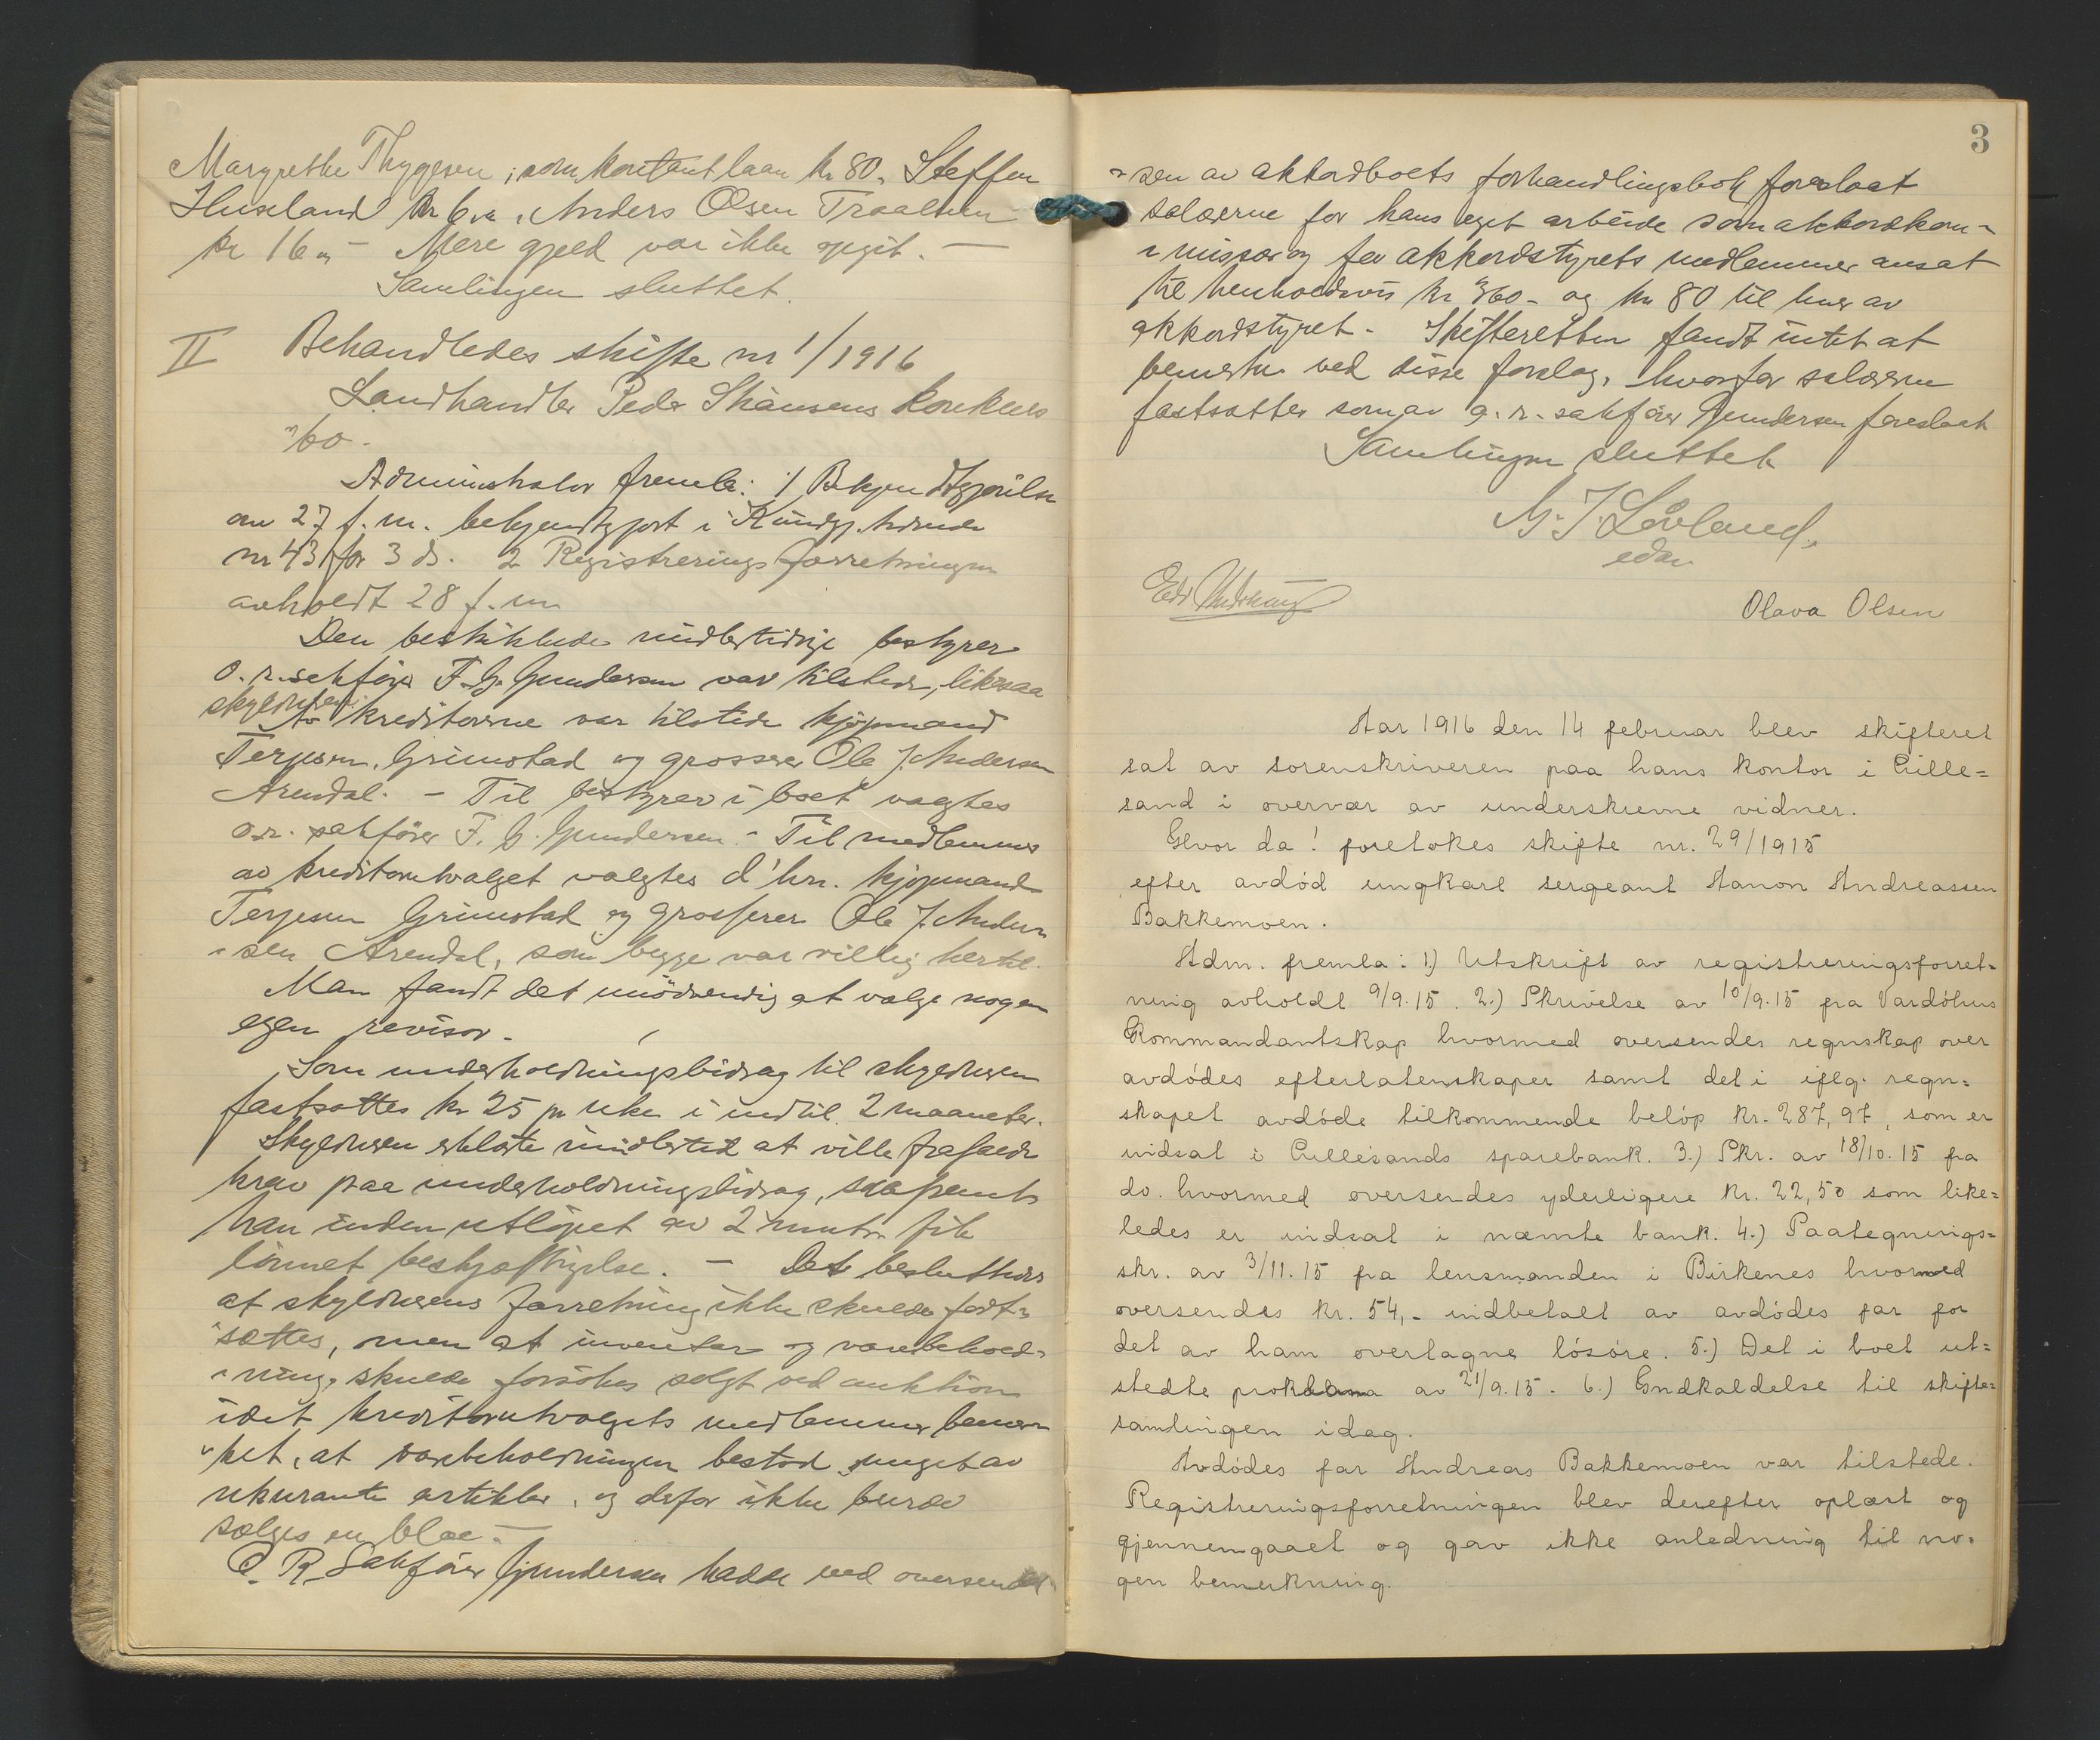 Margrethe Thygesen, som kontant laan kr 80, Steffen
Huseland kr 6, Anders Olsen Traalum
kr 16,- Mere gjeld var ikke opgit. —
Samlingen sluttet.
II Behandledes skifte nr 1/1916
Landhandler Peder Skånsens konkurs
bo.
Administrator fremla: 1/ Bekjendtgjørelse
av 27 f. m. bekjendtgjort i Kundgj. tidende
nr 43 for 3 ds. 2 Registreringsforretningen
avholdt 28 f. m
Den beskikkede midlertidige bestyrer
o.r.sakfører F. G. Gundersen var tilstede, likesaa
skyldneren.
Av kreditorerne var tilstede kjøpmand
Terjesen, Grimstad og grosserer Ole J. Andersen
Arendal. - Til bestyrer i boet valgtes
o.r. sakfører F. G. Gundersen. - Til medlemmer
av kreditorutvalget valgtes d'hrr. kjøpmand
Terjesen Grimstad og grosserer Ole J. Ander-
-sen Arendal, som begge var villig hertil.
Man fandt det unødvendig at vælge nogen
egen revisor.
Som underholdningsbidrag til skyldneren
fastsattes kr 25 pr uke i indtil 2 maaneder.
Skyldneren erklærte imidlertid at ville frafalde
krav paa underholdningsbidrag, saafremt
han inden utløpet av 2 mnter fik
lønnet beskjæftigelse. — Det besluttedes
at skyldnerens forretning ikke skulde fort=
sættes, men at inventar og varebehold-
-ning, skulde forsøkes solgt ved auktion
idet kreditorutvalgets medlemmer bemer-
ket, at varebeholdningen bestod meget av
ukurante artikler, og derfor ikke burde
sælges en bloc. —
O. R. Sakfører Gundersen hadde ved oversendel
3
-sen av akkordboets forhandlingsbok foreslaat
salærerne for hans eget arbeide som akkordkom-
-missær og for akkordstyrets medlemmer ansat
til henholdsvis kr 360- og kr 80 til hver av
akkordstyret. Skifteretten fandt intet at
bemerke ved disse forslag, hvorfor salærerne
fastsattes som av o. r. sakfører Gundersen foreslaat
Samlingen sluttet
G. T. Løvland.
edsv.
Olava Olsen
Aar 1916 den 14 februar blev skifteret
sat av sorenskriveren paa hans kontor i Lille=
sand i overvær av underskrevne vidner.
Hvor da! foretokes skifte nr. 29/1915
efter avdød ungkarl sergeant Aanon Andreassen
Bakkemoen.
Adm. fremla: 1) Utskrift av registreringsforret-
ning avholdt 9/9.15. 2.) Skrivelse av 10/9.15 fra Vardöhus
Kommandantskap hvormed oversendes regnskap over
avdödes efterlatenskaper samt det i iflg. regn=
skapet avdöde tilkommende belöp kr. 287,97, som er
indsat i Lillesands sparebank. 3.) Skr. av 18/10.15 fra
do. hvormed oversendes yderligere kr. 22,50 som like=
ledes er indsat i nævnte bank. 4.) Paategnings=
skr. av 3/11.15 fra lensmanden i Birkenes hvormed
oversendes kr. 54,- indbetalt av avdödes far for
det av ham overtagne lösöre. 5.) Det i boet ut=
stedte proklama av 21/9.15. 6.) Indkaldelse til skifte=
samlingen idag.
Avdödes far Andreas Bakkemoen var tilstede.
Registreringsforretningen blev derefter oplæst og
gjennemgaaet og gav ikke anledning til no=
gen bemerkning.